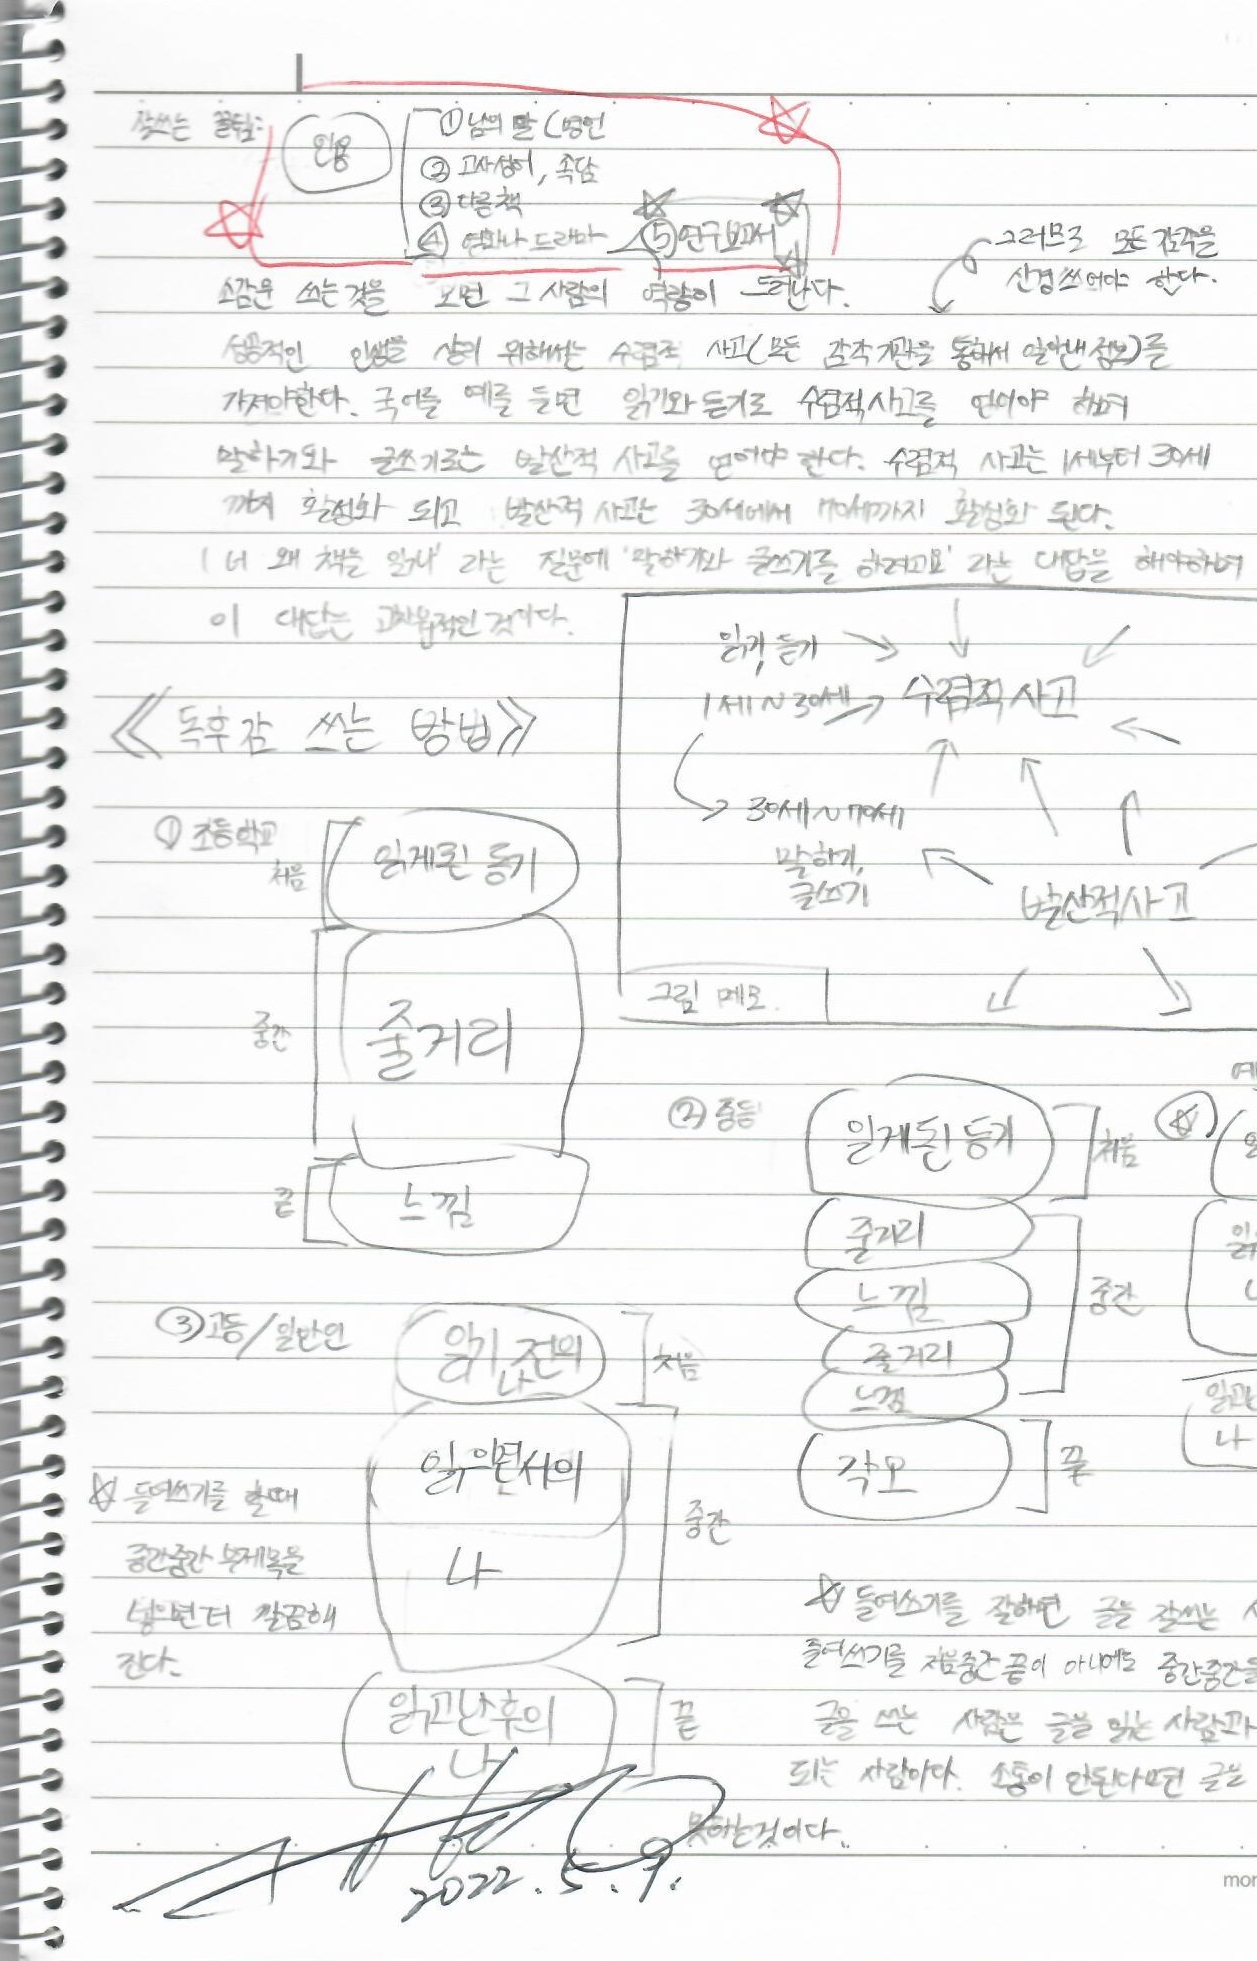 잘쓰는 꿀팁:
인용
① 남의 말 (명언
② 고사성어, 속담
③ 다른책
④ 영화나 드라마
⑤ 연구보고서
소감문 쓰는것을 보면 그 사람의 역량이 드러난다.
그러므로 모든 감각을
신경쓰어야 한다.
성공적인 인생을 살기 위해서는 수렴적 사고(모든 감각기관을 통해서 알아낸 정보)를
가져야한다. 국어를 예를 들면 읽기와 듣기로 수렴적사고를 얻어야 하며
말하기와 글쓰기로는 발산적 사고를 얻어야 한다. 수렴적 사고는 1세부터 30세
까지 활성화 되고 발산적 사고는 30세에서 70세까지 활성화 된다.
'너 왜 책을 읽니' 라는 질문에 '말하기와 글쓰기를 하려고요' 라는 대답을 해야하며
이 대답은 고차원적인 것이다.
읽기, 듣기
1세~30세
수렴적 사고
30세~70세
말하기,
글쓰기
발산적사고
그림 메모.
《독후감 쓰는 방법》
① 초등학교
처음
읽게된 동기
중간
줄거리
끝
느낌
② 중등
읽게된 동기
처음
줄거리
느낌
줄거리
느낌
중간
각오
끝
예
읽
나
③ 고등/일반인
읽기 전의
나
처음
읽으면서의
나
중간
읽고난 후의
나
끝
☆ 들여쓰기를 할때
중간중간 부제목을
넣으면 더 깔끔해
진다.
☆ 들여쓰기를 잘하면 글을 잘쓰는
들여쓰기를 처음중간 끝이 아니에도 중간중간
글을 쓰는 사람은 글을 읽는 사람과
되는 사람이다. 소통이 안된다면 글을
못하는것이다.
2022. 5. 9.
mor